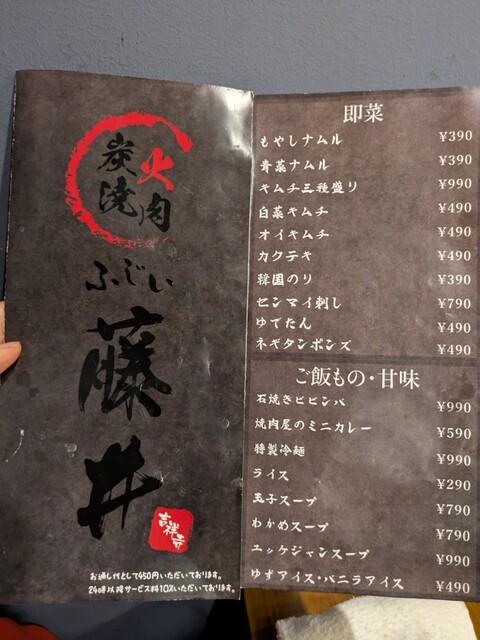 炭火
焼肉
ふじい
藤井
吉祥寺
お通し代として450円いただいております。
24時以降サービス料10%いただいております。
即菜
もやしナムル ¥390
青菜ナムル ¥390
キムチ三種盛り ¥990
白菜キムチ ¥490
オイキムチ ¥490
カクテキ ¥490
韓国のり ¥390
センマイ刺し ¥790
ゆでたん ¥490
ネギタンポンズ ¥490
ご飯もの・甘味
石焼きビビンバ ¥990
焼肉屋のミニカレー ¥590
特製冷麺 ¥990
ライス ¥290
玉子スープ ¥790
わかめスープ ¥790
ユッケジャンスープ ¥990
ゆずアイス・バニラアイス ¥490